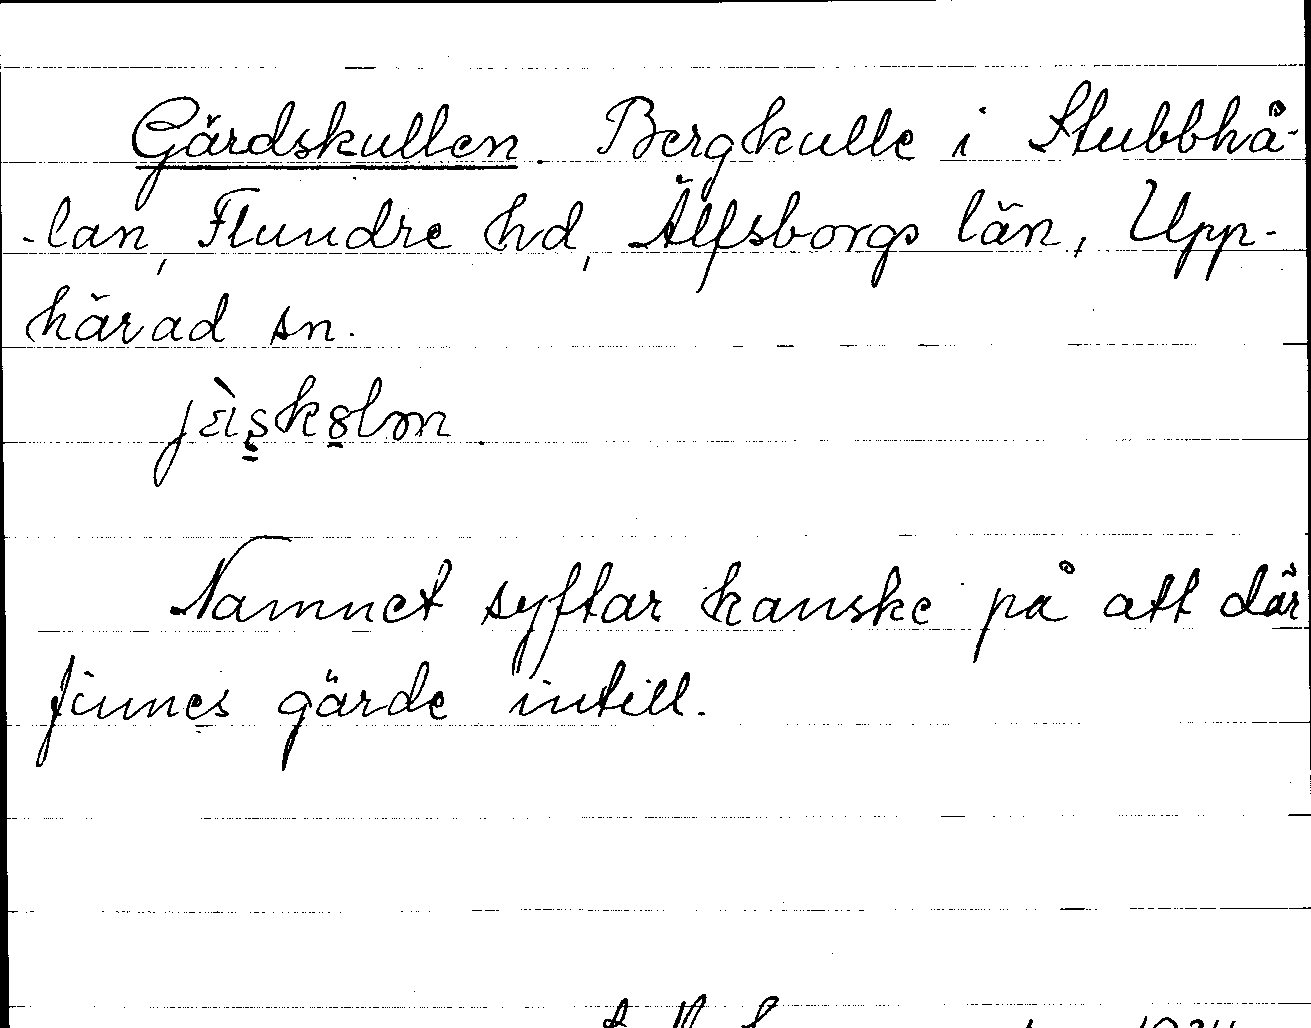 Gärdskullen. Bergkulle i Stubbhå-
-lan, Flundre hd, Älfsborgs län, Upp-
härad sn.
Namnet syftar kanske på att där
finnes gärde intill.